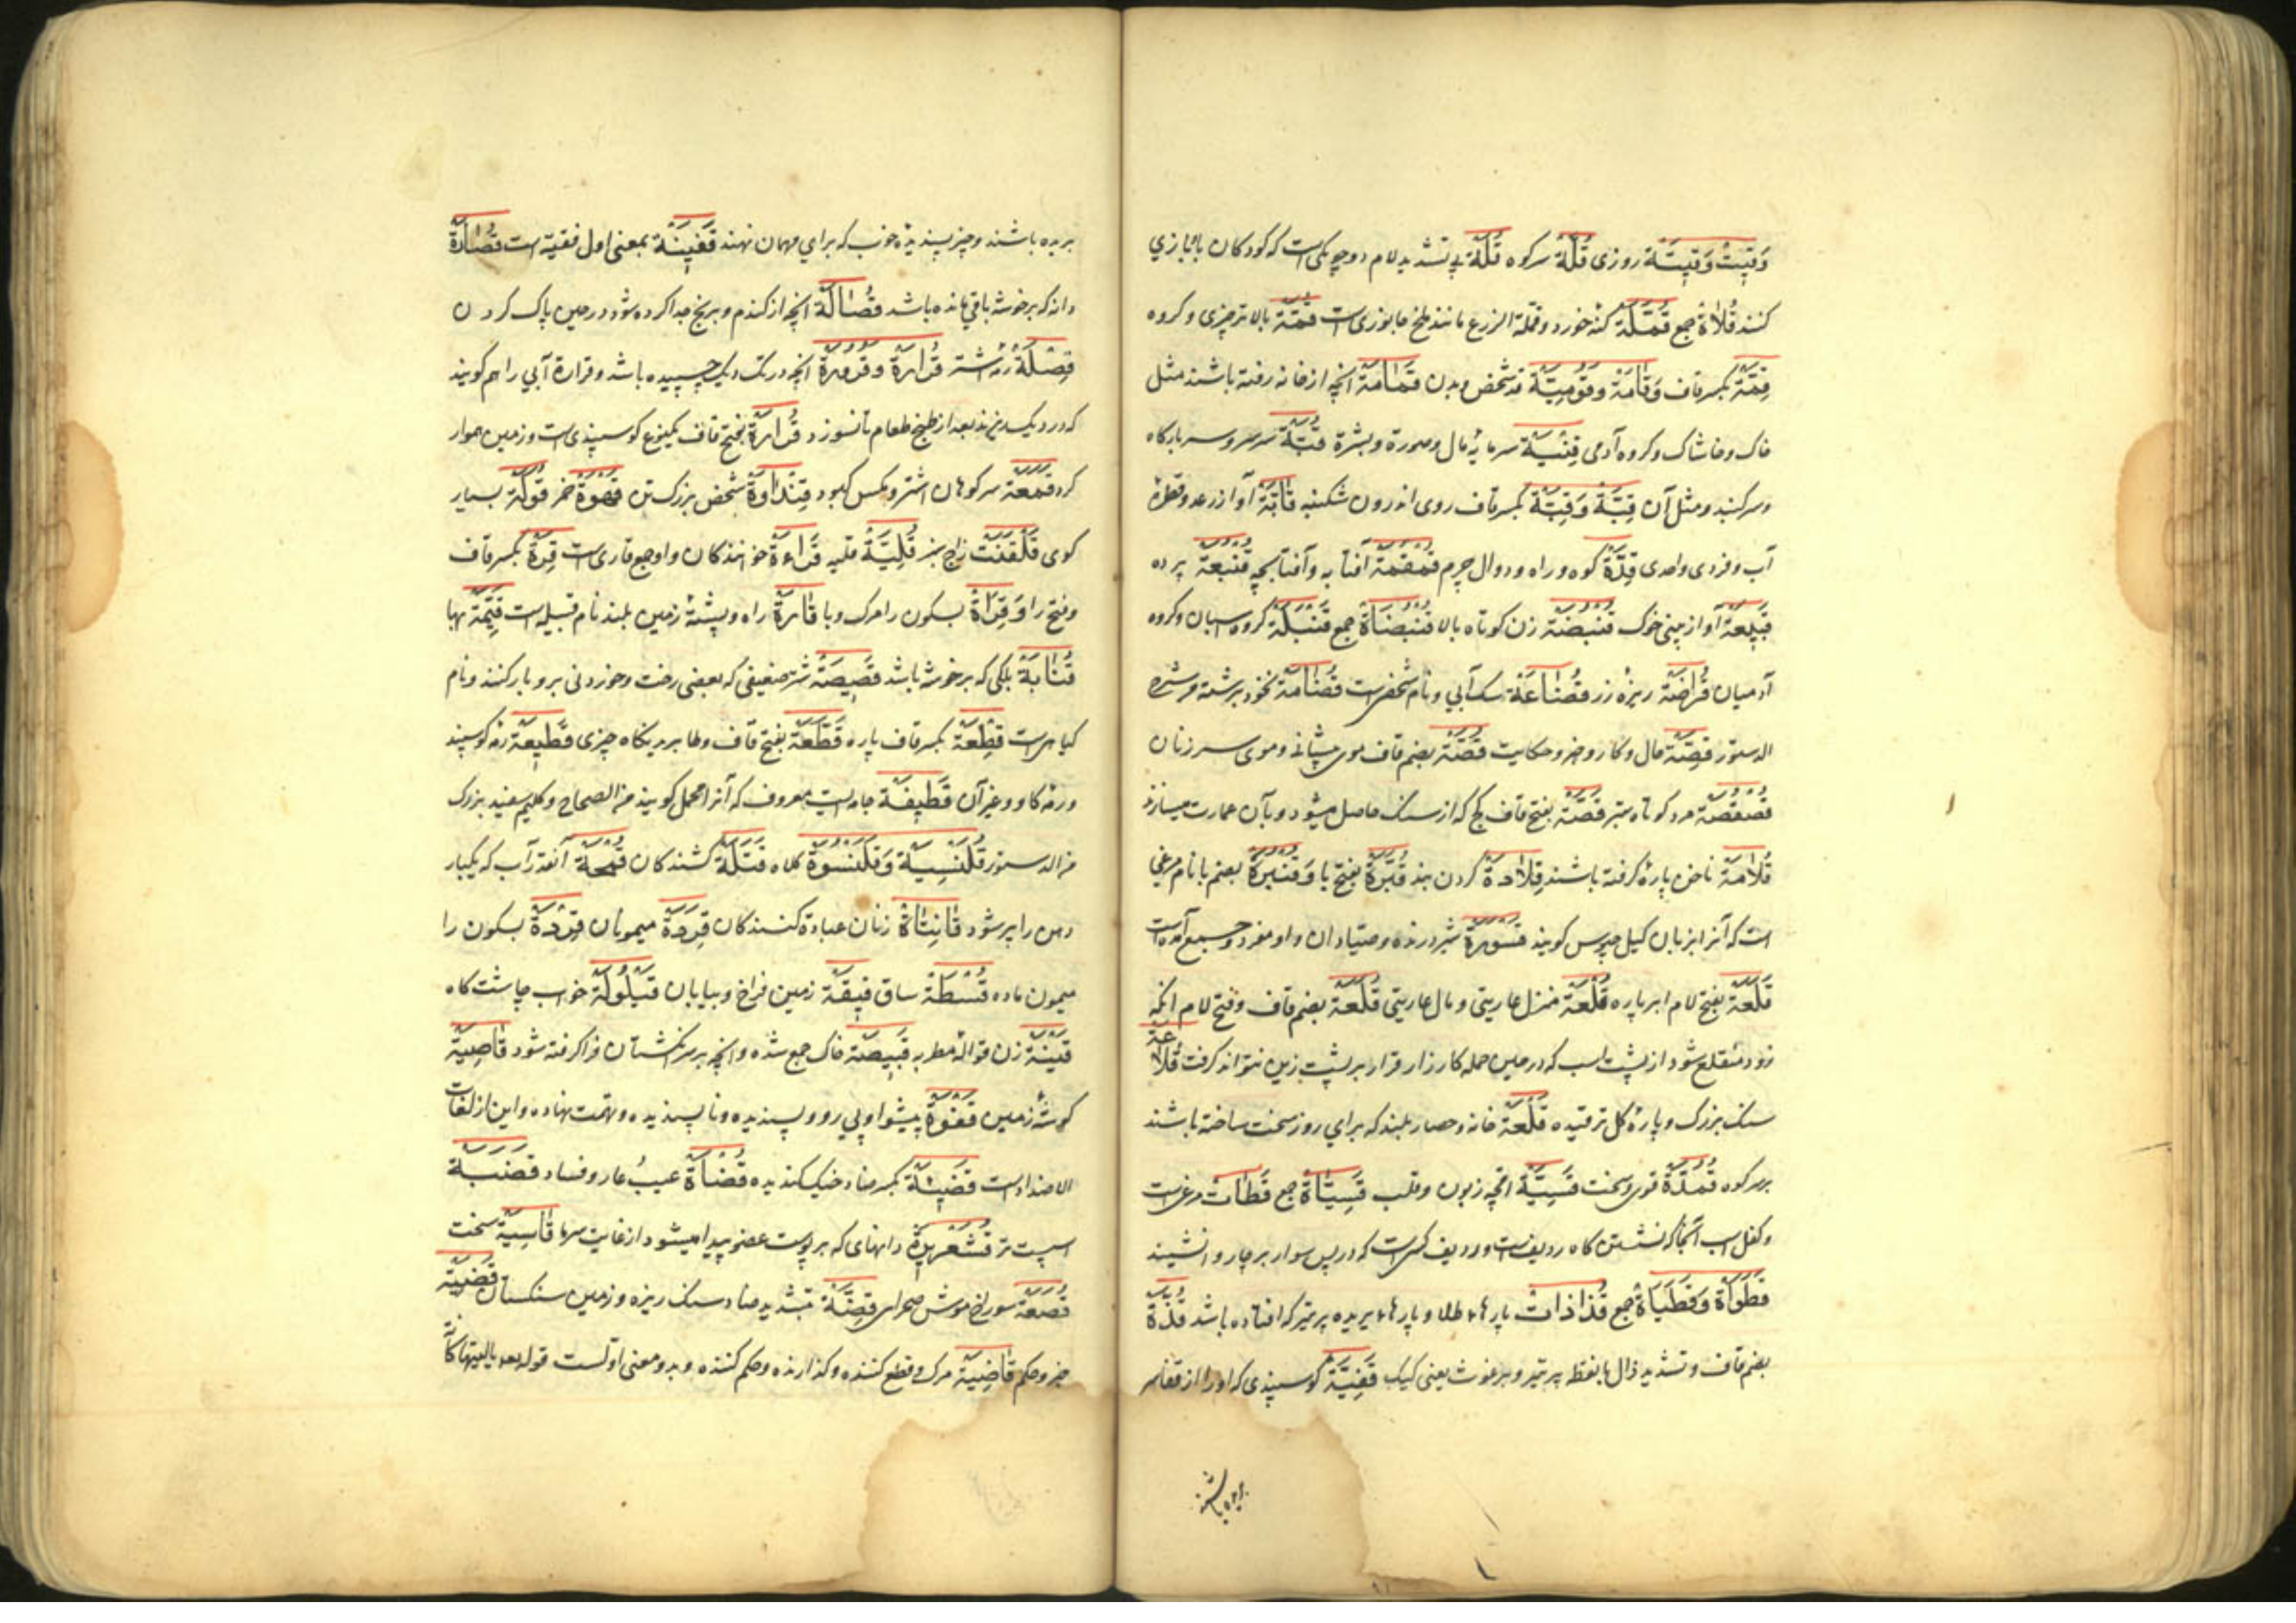 وَقِيتْ وَقِيتَة روزی قُلَّة سر کوه قُلَة بی تشدید لام دو چوبکی است که کودکان با آن بازی
کنند قُلَاة جمع قُمَّلَة کنه خورد و قملة الزرع مانند ملخ جانوری است قِمَّة بالاتر چیزی و کروه
قِمَّة بکسر قاف وَقَامَة وقُومِيَّة قد شخص و بدن قُمَامَة آنچه از خانه رفته باشند مثل
خاک و خاشاک و کروه آدمی قِنْيَة سرمایهٔ مال وصورة وبشرة قُبَّة سر سر و سر بارکاه
وسر کنبد و مثل آن قِبَّة وَقِبَّة بکسر قاف روی اندرون شکنبه قَابَّة آواز رعد و قطرهٔ
آب و فردی واحدی قِدَّة کوه و راه و دوال چرم قُمْقُمَة آفتابه و آفتابچه قُنْبُعَة پرده
قَبِيعَة آواز بینی خوک قُنْبُضَة زن کوتاه بالا قُنْبُضَاة جمع قَنْبَلَة کروه اسبان و کروه
آدمیان قُرَاضَة ریزهٔ زر قُضَاعَة سک آبی و نام شخصی است قُضَامَة نخود برشته من شرح
الدستور قِصَّة حال و کار و خبر و حکایت قُصَّة بضم قاف موی پیشانی و موی سر زنان
قُصْقُصَة مرد کوتاه ستبر قَصَّة بفتح قاف کچ که از سنک حاصل میشود و بآن عمارت میسازند
قُلَامَة ناخن پاره کرفته باشند قِلَادَة کردن بند قُبَّرَة بفتح با وَقُنْبُرَة بضم با نام مرغی
است که آنرا بزبان کیل چپوس کویند قَسْوَرَة شیر درنده وصیادان واو مفرد وجمع آمده است
قَلَعَة بفتح لام ابر پاره قُلْعَة منزل عاریتی و مال عاریتی قُلَعَة بضم قاف وفتح لام آنکه
زود منقلع شود از پشت اسب که در حین حمله کارزار قرار بر پشت زین نتواند کرفت قُلَاعَة
سنک بزرک و پارهٔ کل ترقیده قَلْعَة خانه وحصار بلند که برای روز سخت ساخته باشند
بر سر کوه قُمُدَّة قوی و سخت قَسِيَّة اقچه زبون وقلب قَسِيَّاة جمع قَطَات مرغی است
وکفل اسب آنجا که نشستن کاه ردیف است وردیف کسی است که در پس سوار بر چاروا نشیند
قَطَوَاة وَقَطَيَاة جمع قُذَاذَات پارهاء طلا و پارهاء بریده پر تیر که افتاده باشد قُذَّة
بضم قاف و تشدید ذال با نقطه پر تیر و برغوث یعنی کیک قَفِيَّة کوسپندی که او را از قفا سر
بریده باشند
بریده باشند وچیز پسندیدهٔ خوب که برای مهمان نهند قَفِينَة بمعنی اول قفیة است قُصَادَة
دانه که بر خوشه باقی مانده باشد قُصَالَة آنچه از کندم و برنج جدا کرده شود در حین پاک کردن
قِصْلَة رمهٔ شتر قُرَارَة وقُرُورَة آنچه در تک دیک چسپیده باشد وقرارة آبی را هم کویند
که در دیک ریزند بعد از طبخ طعام تا نسوزد قَرَارَة بفتح قاف یکنوع کوسپندی است وزمین هموار
کرد قَمَعَة سر کوهان اشتر ومکس کبود قِنْدَاوَة شخص بزرک تن قَهْوَة خمر قُوَلَة بسیار
کوی قَلْقَنْت زاج سبز قَلِيَّة قلیه قَرَاءَة خوانندکان واو جمع قاری است قِرَّة بکسر قاف
وفتح را وَقِرَاة بسکون را مرک وبا قَارَة راه وپشتهٔ زمین بلند نام قبیله است قِيمَة بها
قُنَابَة بلکی که بر خوشه باشد قَصِيصَة شتر ضعیفی که بعضی رخت وخوردنی برو بار کنند ونام
کیاهی است قِطْعَة بکسر قاف پاره قَطَعَة بفتح قاف وطا بریدنکاه چیزی قَطِيعَة رمه کوسپند
ورمهٔ کاو وغیر آن قَطِيفَة جامه ایست معروف که آنرا مخمل کویند من الصحاح وکلیم سفید بزرک
من الدستور قَلَنْسِيَة وَقَلَنْسُوَة کلاه قَتَلَة کشندکان قُمْحَة آنقدر آب که یکبار
دهن را پر شود قَانِتَاة زنان عبادة کنندکان قِرَدَة میمونان قِرْدَة بسکون را
میمون ماده قُسْطَة ساق قِيقَة زمین فراخ وبیابان قَيْلُولَة خواب چاشت کاه
قَيْنَة زن قوالهٔ مطربه قَبِيصَة خاک جمع شده وآنچه بر سر انکشتان فرا کرفته شود قَاصِيَة
کوشهٔ زمین قَفْوَة پیشوا وپی رو وپسندیده وناپسندیده وتهمت نهاده واین از لغات
الاضداد است قَضِيئَة بکسر ضاد خیک کندیده قُضْاَة عیب عار وفساد قَضْبَة
اسپست تر قُشَعْرِيرَة دانهای که بر پوست عضو پیدا میشود از غایت سرما قَاسِيَة سخت
قُصَعَة سوراخ موش صحرایی قِضَّة بتشدید ضاد سنک ریزه وزمین سنکستان قَضِيَّة
خبر وحکم قَاضِيَة مرک وقطع کننده وکذارنده وحکم کننده وبدو معنی اولست قوله تعالی یا لیتها کانت